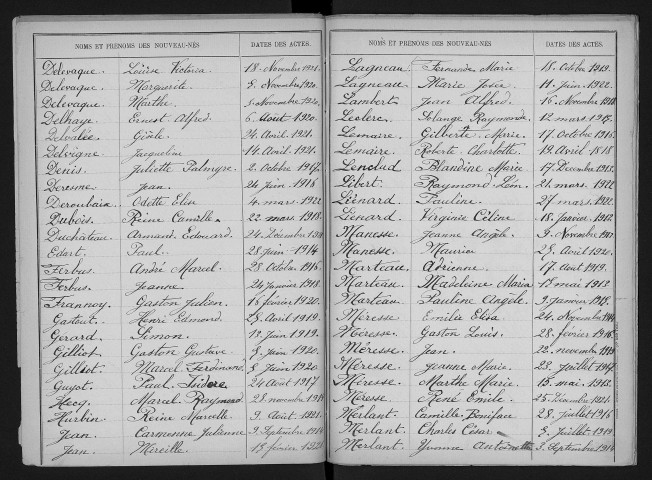 NOMS ET PRÉNOMS DES NOUVEAU-NÉS DATES DES ACTES.
Delevaque Louise Victoria 18 Novembre 1921.
Delevaque Marguerite 5 Novembre 1920.
Delevaque Marthe 5 Novembre 1920.
Delhaye Ernest Alfred 6 Août 1920.
Gisèle 24 Avril 1921.
Delvigne Jacqueline 14 Avril 1921.
Denis Juliette Palmyre 2 Octobre 1917.
Deresme Jean 24 Juin 1916
Deroubaix Odette Elise 4 mars 1922
Dubois Reine Camille 22 mars 1918.
Duchateau Armand Edouard 24 Décembre
Edart Paul 28 Juin 1914
Ferbus André Marcel 28 Octobre 1916.
Ferbus Jeanne 24 Janvier 1918.
Frannoy Gaston Julien 16 février 1920.
Henri Edmond 28 Août 1919
Gérard Simon 13 Juin 1919.
Gilliot Gaston Gustave 5 Juin 1920.
Gilliot Marcel Ferdinand 5 Juin 1920
Guyot Paul Isidore 24 Août 1917
Hecq Marcel Raymond 28 novembre
Hurbin Reine Marcelle 9 Août 1921.
Jean Carmenne Julianne 3 Septembre
Jean Mireille 15 février
NOMS ET PRÉNOMS DES NOUVEAU-NÉS. DATES DES ACTES.
Lagneau Fernande Marie 18 Octobre 1919.
Lagneau Marie José 11 Juin 1922.
Lambert Jean Alfred 16 Novembre
Leclerc Solange Raymonde 12 mars
Lemaire Gilberte Marie 17 Octobre 1916.
Lemaire Roberte Charlotte 19 Avril 1818
Lenclud Blandine Marie 17 Décembre
Libert Raymond Léon 21 mars 1922
Liénard Pauline 27 mars
Liénard Virginie Céline 18 Janvier
Manesse Jeanne Angèle 9 Novembre
Manesse Maurice 25 Avril
Marteau Adrienne 17 Août 1919.
Marteau Madeleine Maria 15 mai 1913
Marteau Pauline Angèle 9 Janvier
Méresse Emilie Elisa 24 Novembre
Méresse Gaston Louis 28 février 1916.
Méresse Jean 22 novembre
Méresse Jeanne Marie 28 Juillet
Méresse Marthe Marie 15 mai
Méresse René Emile 25 Décembre 1921.
Merlant Camille Boniface 28 Juillet 1916
Merlant Charles César 5 Juillet 1919
Merlant Yvonne Antoinette 3 Septembre